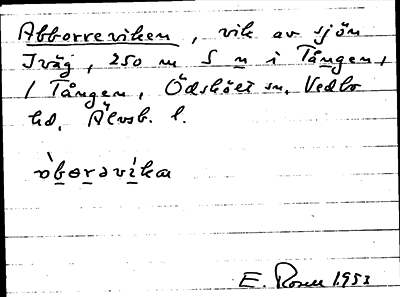 Abborreviken, vik av sjön
Iväg, 250 m S n i Tången,
1 Tången, Ödskölt sn, Vedbo
hd, Älvsb. l.
òbərəvíka
E. Rosen 1953